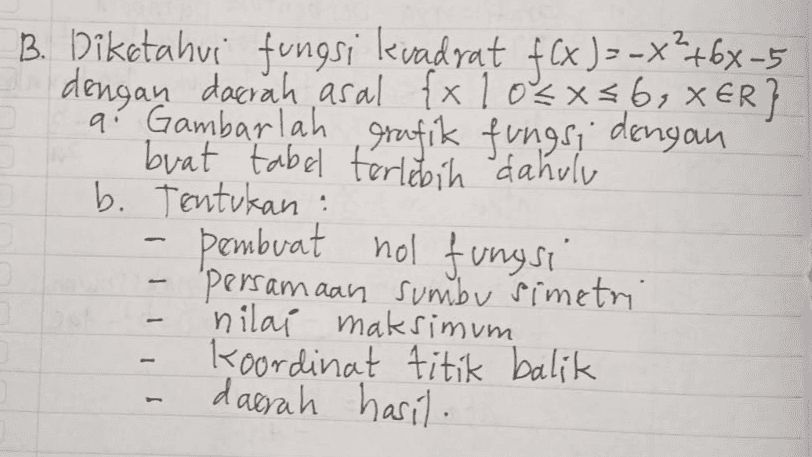 B. Diketahui fungsi kuadrat f(x)=-x²+6x-5
dengan daerah asal {x | 0≤x≤6, x∈R}
a. Gambarlah grafik fungsi dengan
buat tabel terlebih dahulu
b. Tentukan :
- pembuat nol fungsi
- persamaan sumbu simetri
- nilai maksimum
- koordinat titik balik
- daerah hasil.